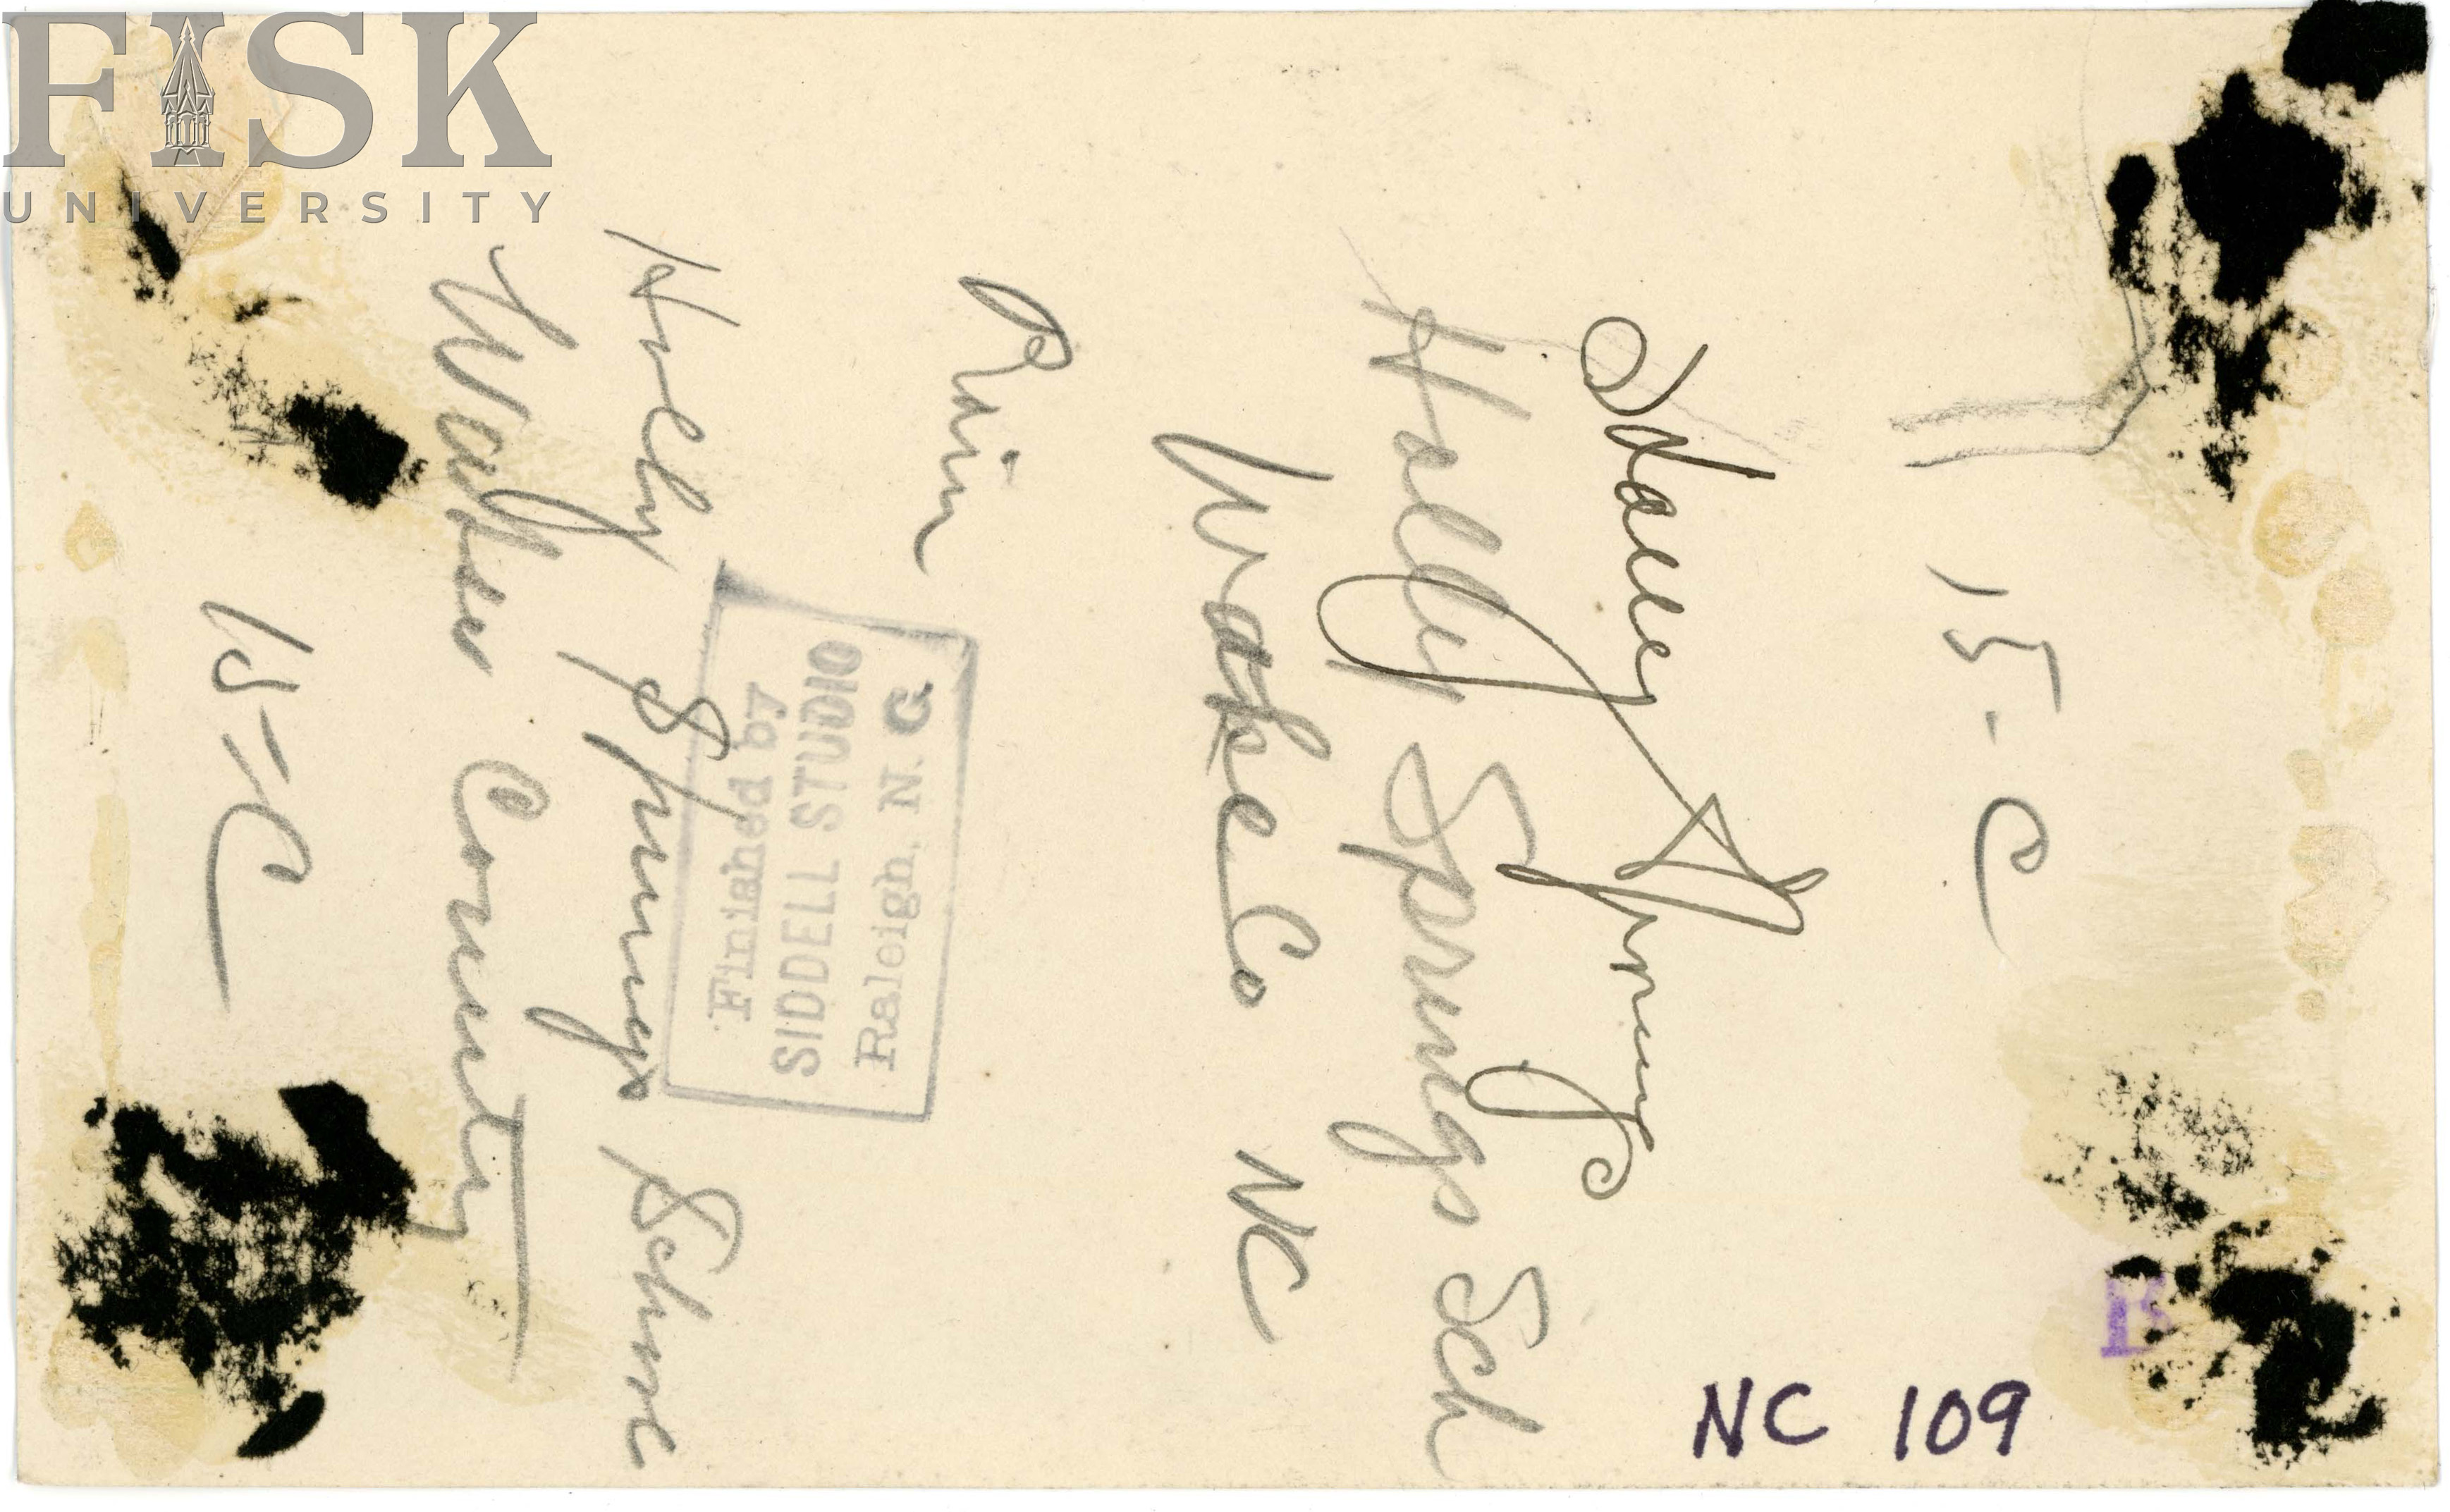 FISK
UNIVERSITY
15-C
Holly Springs
Holly Springs Sch
Wake Co NC
Finished by
SIDDELL STUDIO
Raleigh, N. C.
Holly Springs School
Wake County
15-C
NC 109
B